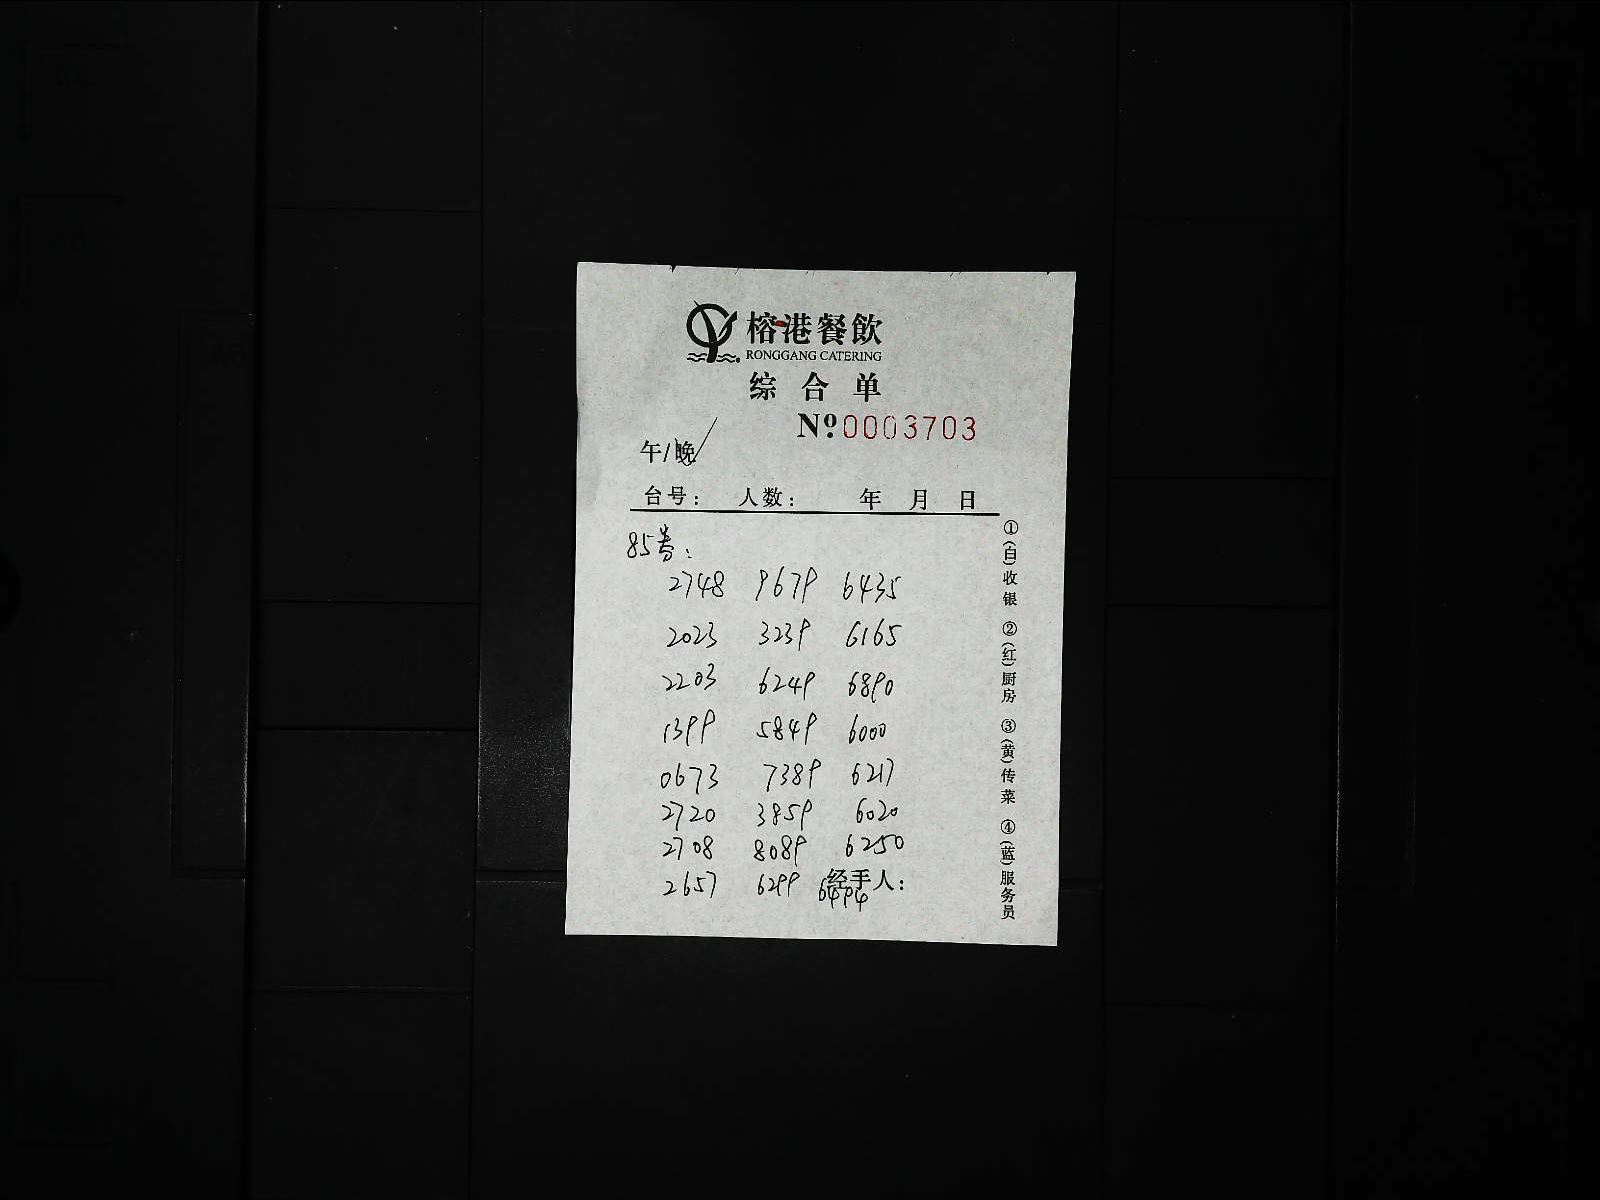 榕港餐飲
RONGGANG CATERING
综合单
№0003703
午/晚
台号: 人数: 年 月 日
85券:
2748 9679 6435
2023 3239 6165
2203 6249 6890
1399 5849 6000
0673 7389 6217
2720 3859 6020
2708 8089 6250
2657 6299 6494
经手人:
①(白)收银 ②(红)厨房 ③(黄)传菜 ④(蓝)服务员